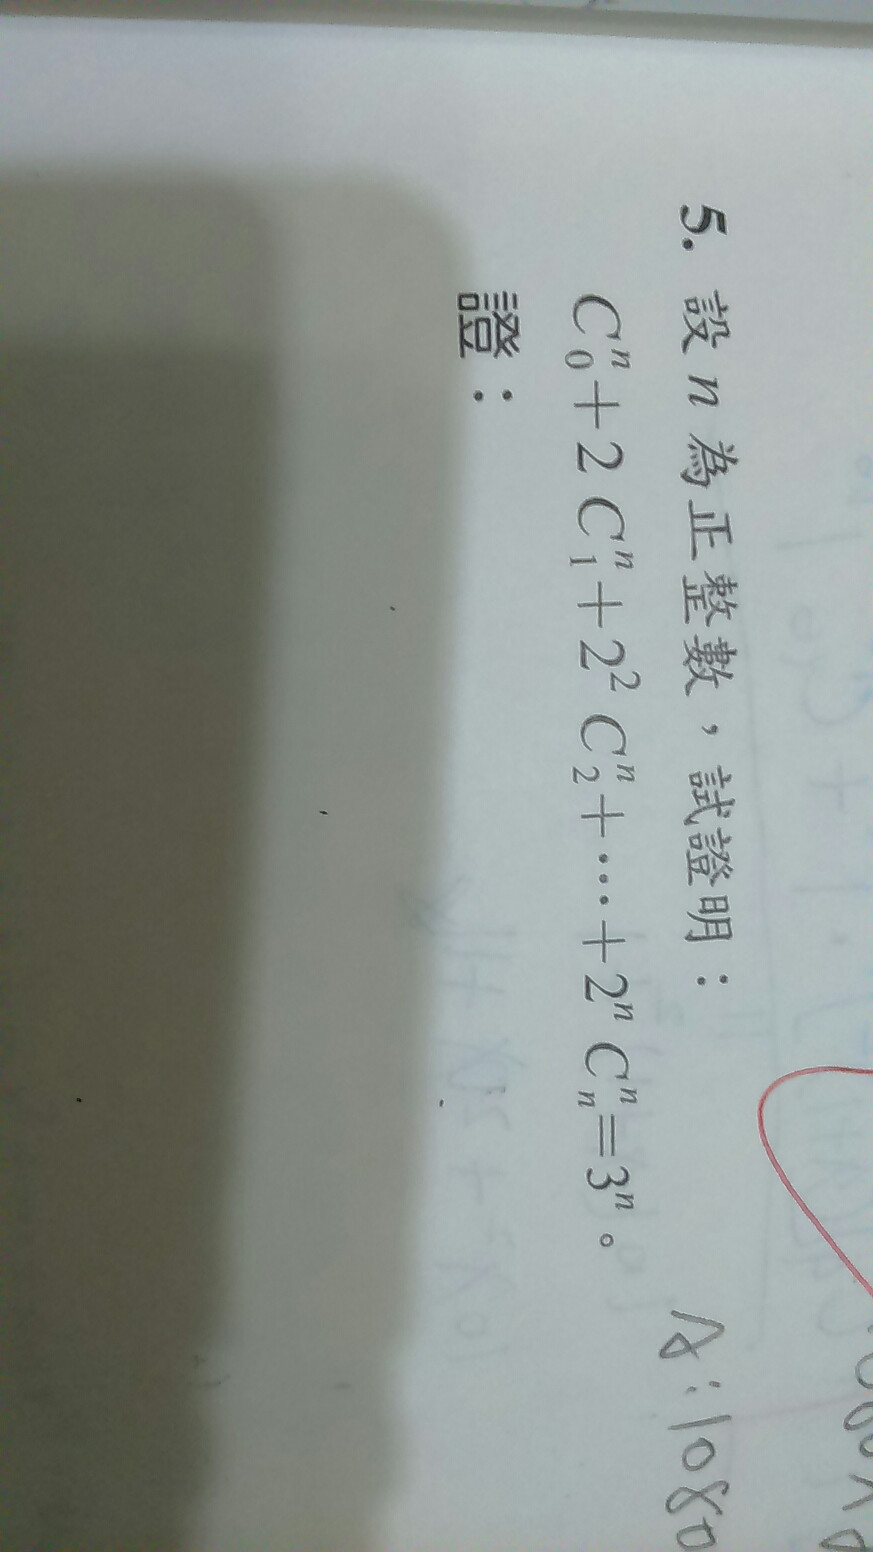 5. 設 n 為正整數，試證明：
C₀ⁿ + 2 C₁ⁿ + 2² C₂ⁿ + ⋯ + 2ⁿ Cₙⁿ = 3ⁿ。
證：
A：1080